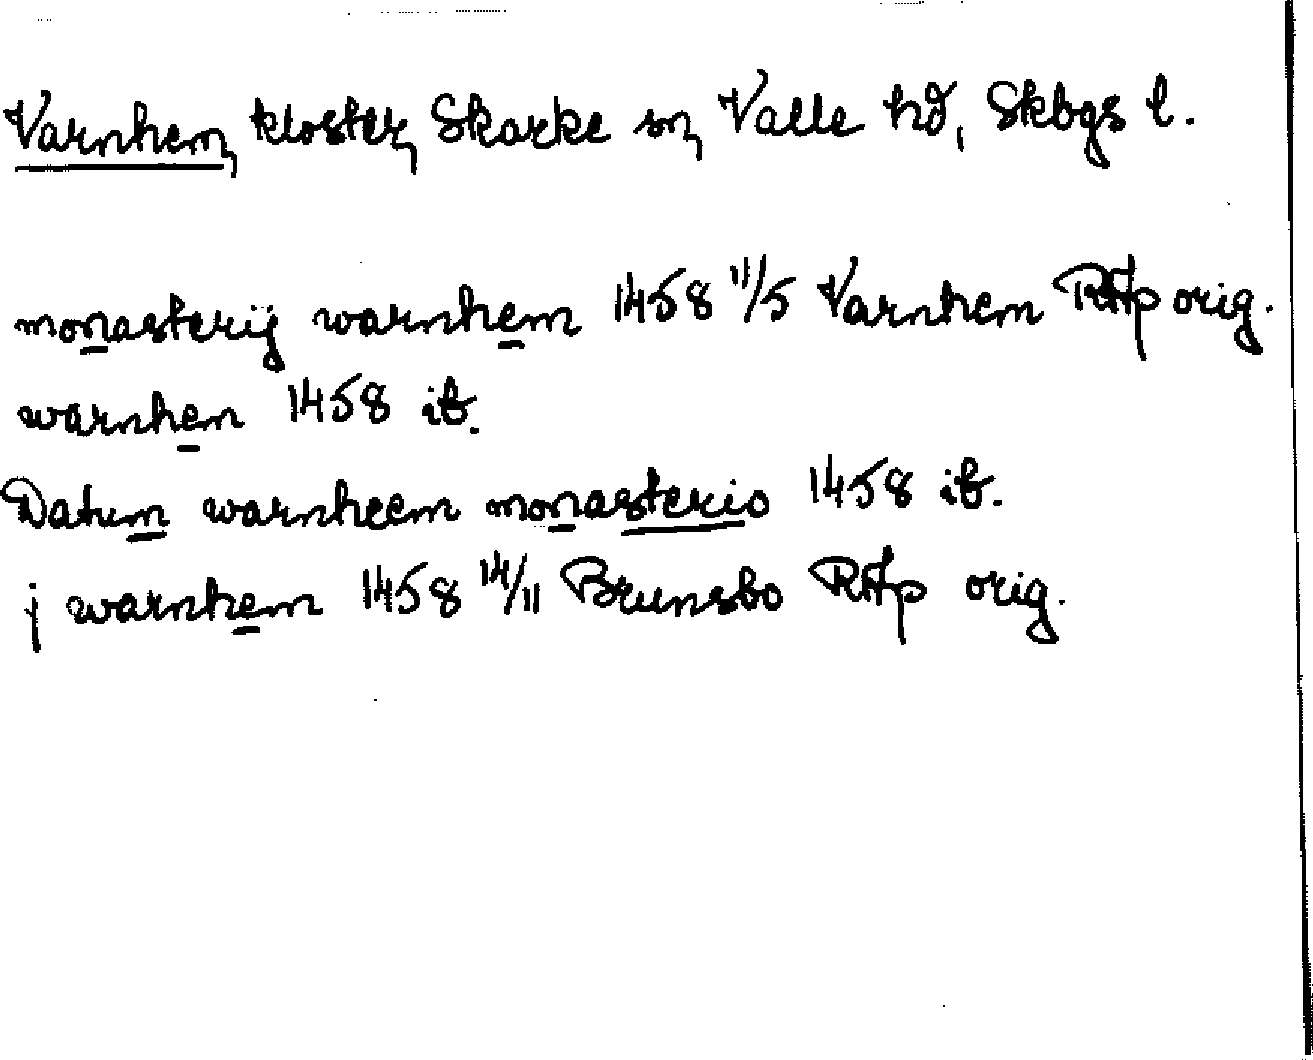 Varnhem, kloster, Skarke sn, Valle hd, Skbgs l.
monasterij warnhem 1458 11/5 Varnhem RAp orig.
warnhem 1458 ib.
Datum warnheem monasterio 1458 ib.
j warnhem 1458 14/11 Brunsbo RAp orig.